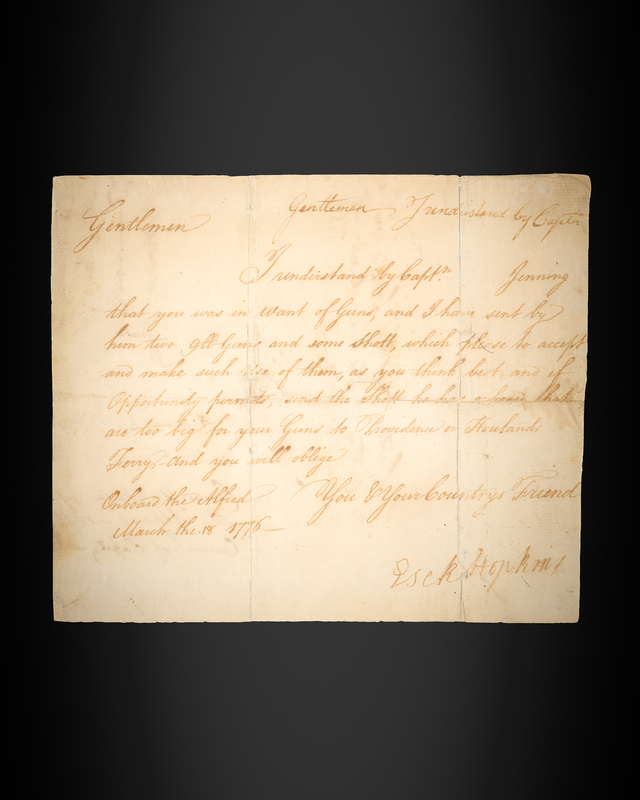 Gentlemen Gentlemen I understand by Captn
I understand by Captn. Jenning
that you was in want of Guns, and I have sent by
him two 9ll Guns and some Shott, which please to accept
and make such use of them, as you think best, and if
Opportunity permits, send the Shott he has aboard that
are too big for your Guns to Providence or Howlands
Ferry, and you will oblige
Onboard the Alfred You & Your Countrys Friend
March the 18 1776
Esek Hopkins